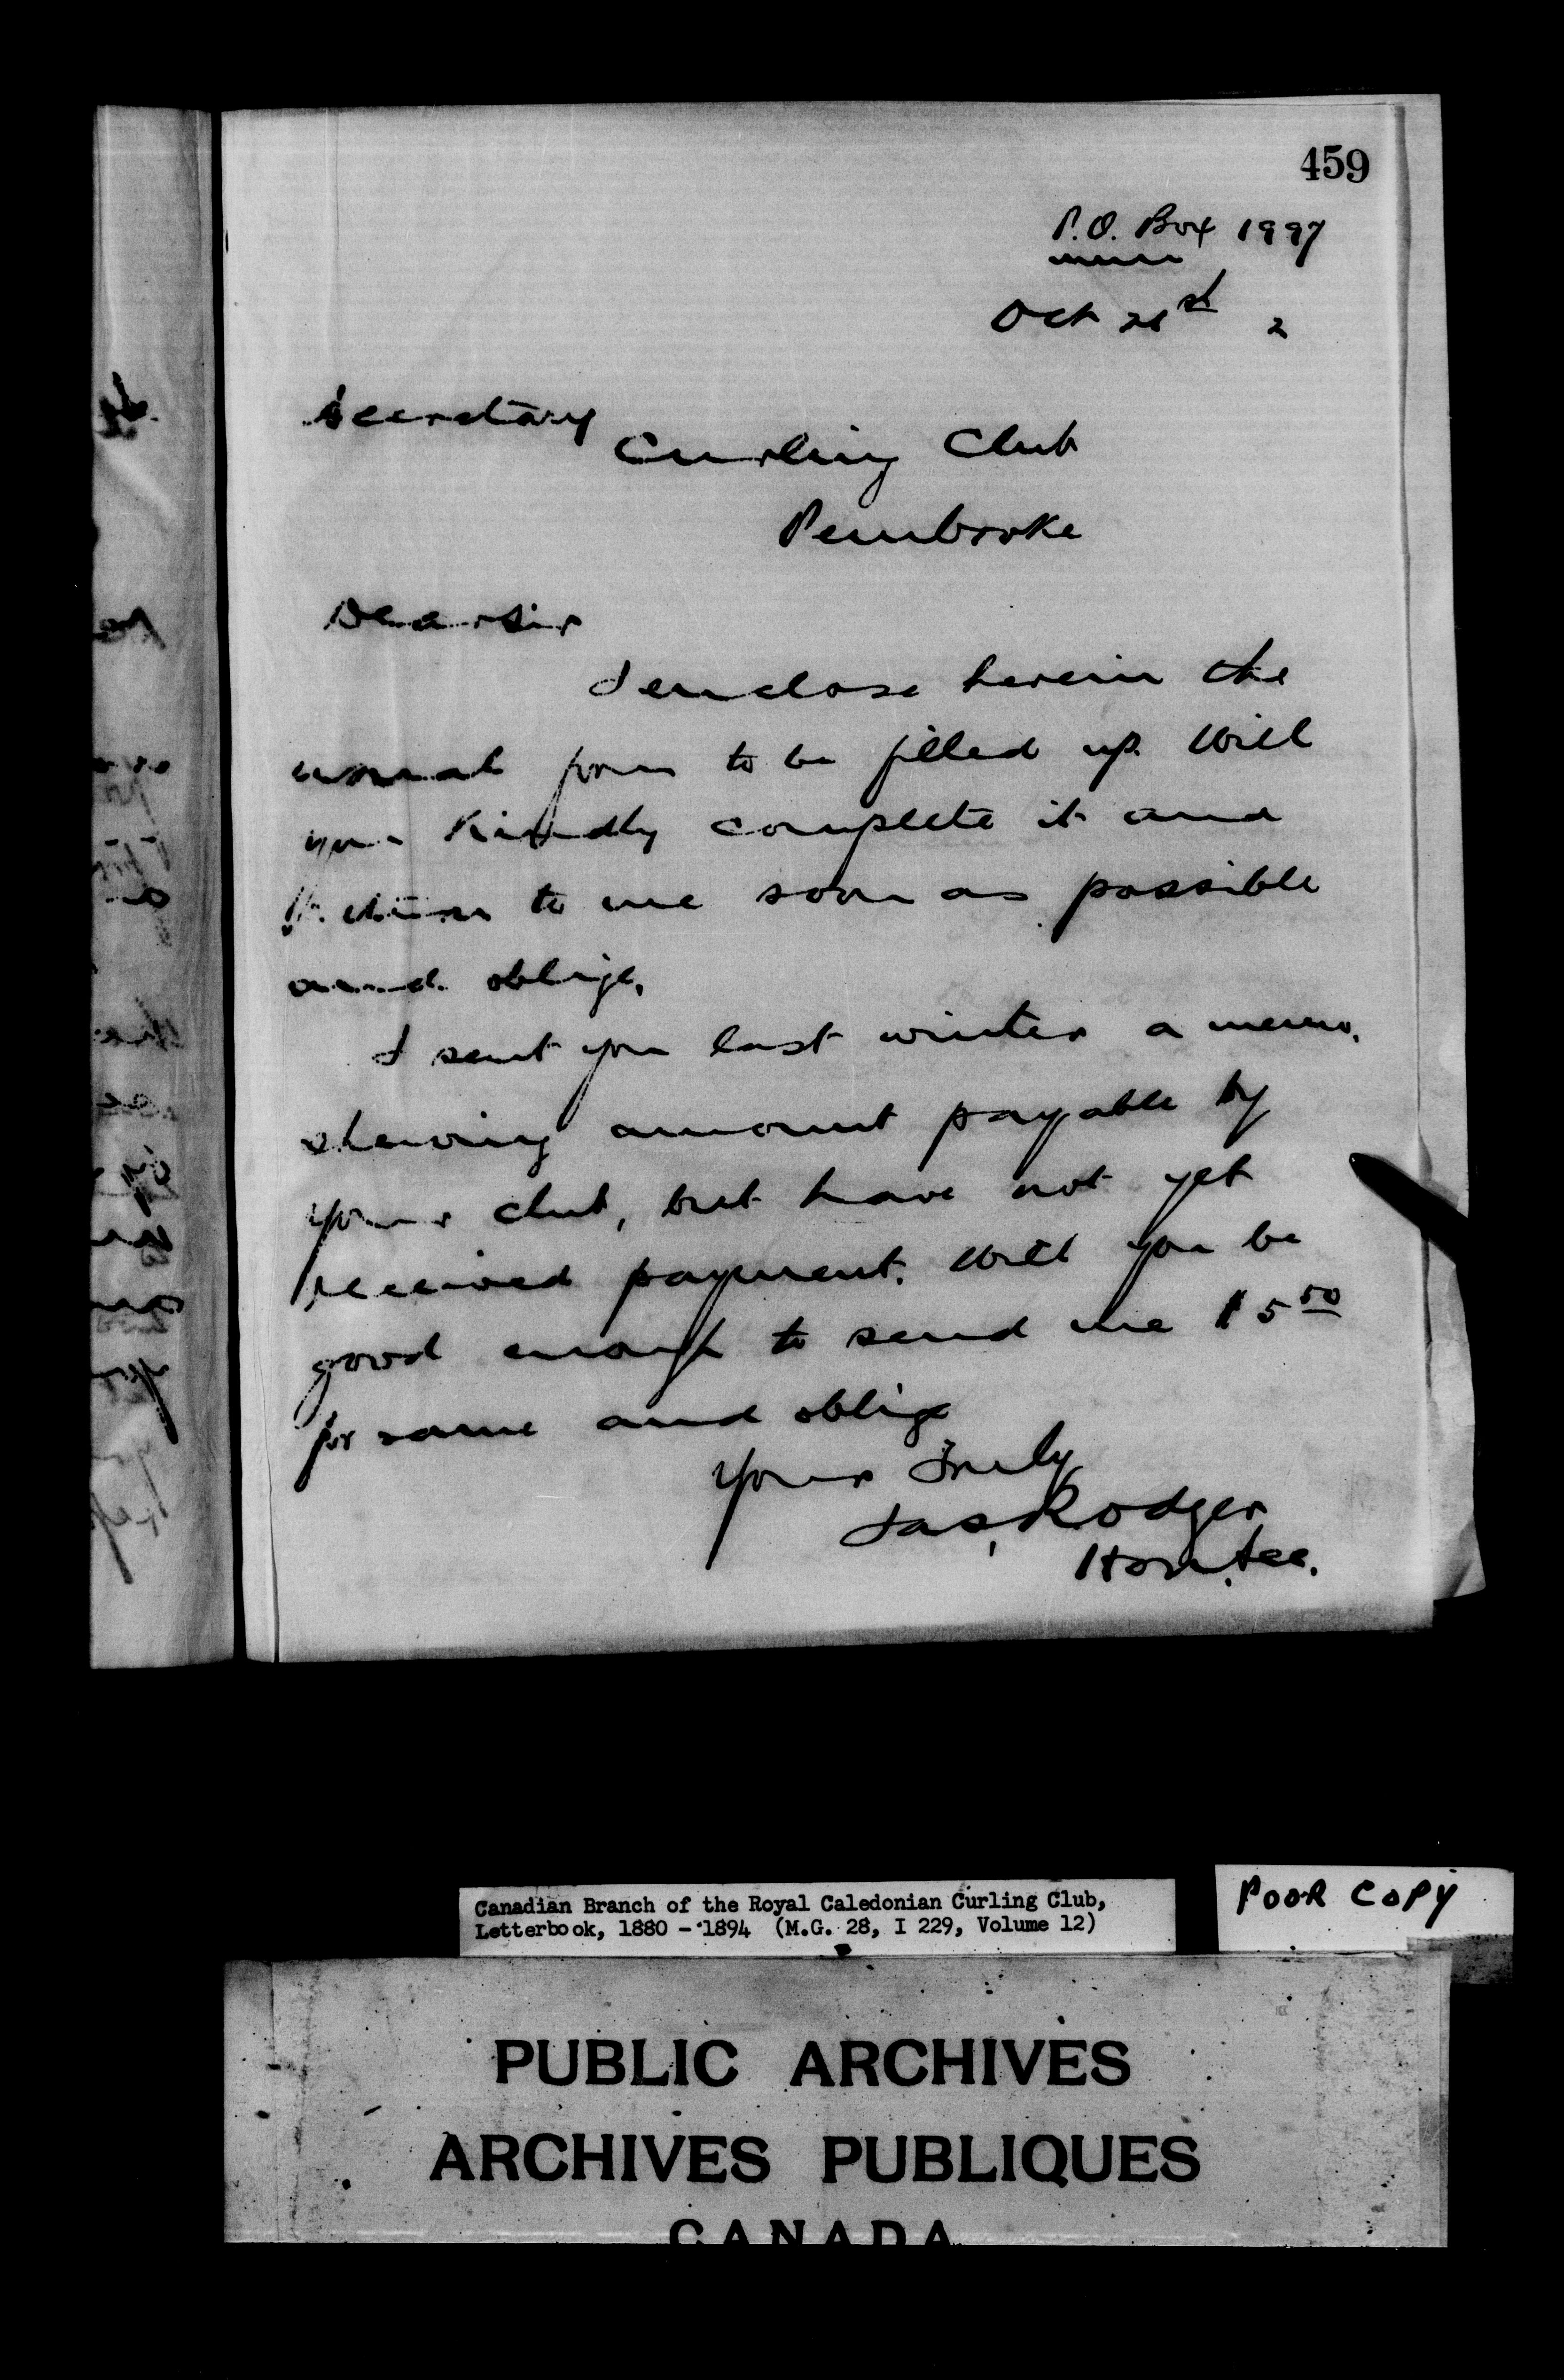 459
P.O. Box 1997
Oct 21st 2
Secretary
Curling Club
Pembroke
Dear Sir
I enclose herein the
usual form to be filled up. Will
you Kindly complete it and
return to me soon as possible
and oblige,
I sent you last winter a memo.
shewing amount payable by
your club, but have not yet
received payment. Will you be
good enough to send me $5 50
for same and oblige
Yours Truly
Jas, Rodger
Hon. Sec.
Canadian Branch of the Royal Caledonian Curling Club,
Letterbook, 1880 - 1894 (M.G. 28, I 229, Volume 12)
POOR COPY
PUBLIC ARCHIVES
ARCHIVES PUBLIQUES
CANADA